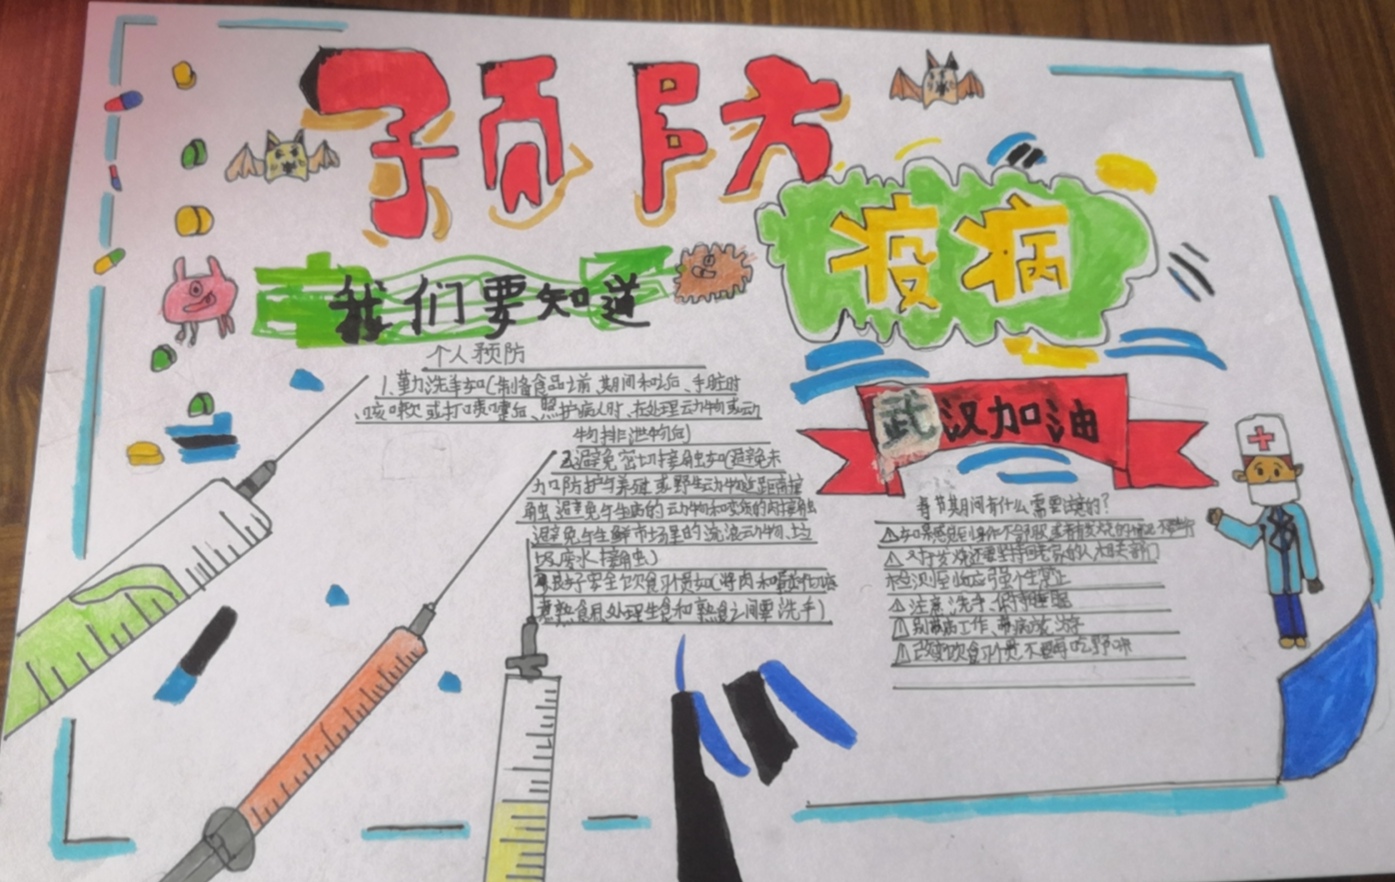 预防
疫病
我们要知道
个人预防
1.勤洗手如(制备食品之前、期间和之后、手脏时
、咳嗽或打喷嚏后、照护病人时、在处理动物或动
物排泄物后)
2.避免密切接触如(避免未
加防护与养殖或野生动物近距离接
触避免与生病的动物和变质的肉接触
避免与生鲜市场里的流浪动物、垃
圾废水接触)
良好安全饮食习惯如(将肉和
煮熟食用处理生食和熟食之间要洗手)
武汉加油
春节期间有什么需要注意的?
如果感觉到身体不舒服或者有发烧的情况不要
对于发烧还要坚持回老家的人相关部门
检测到 应强
注意洗手、保持睡眠
别带病工作、带病
改变饮食习惯不要再吃野味